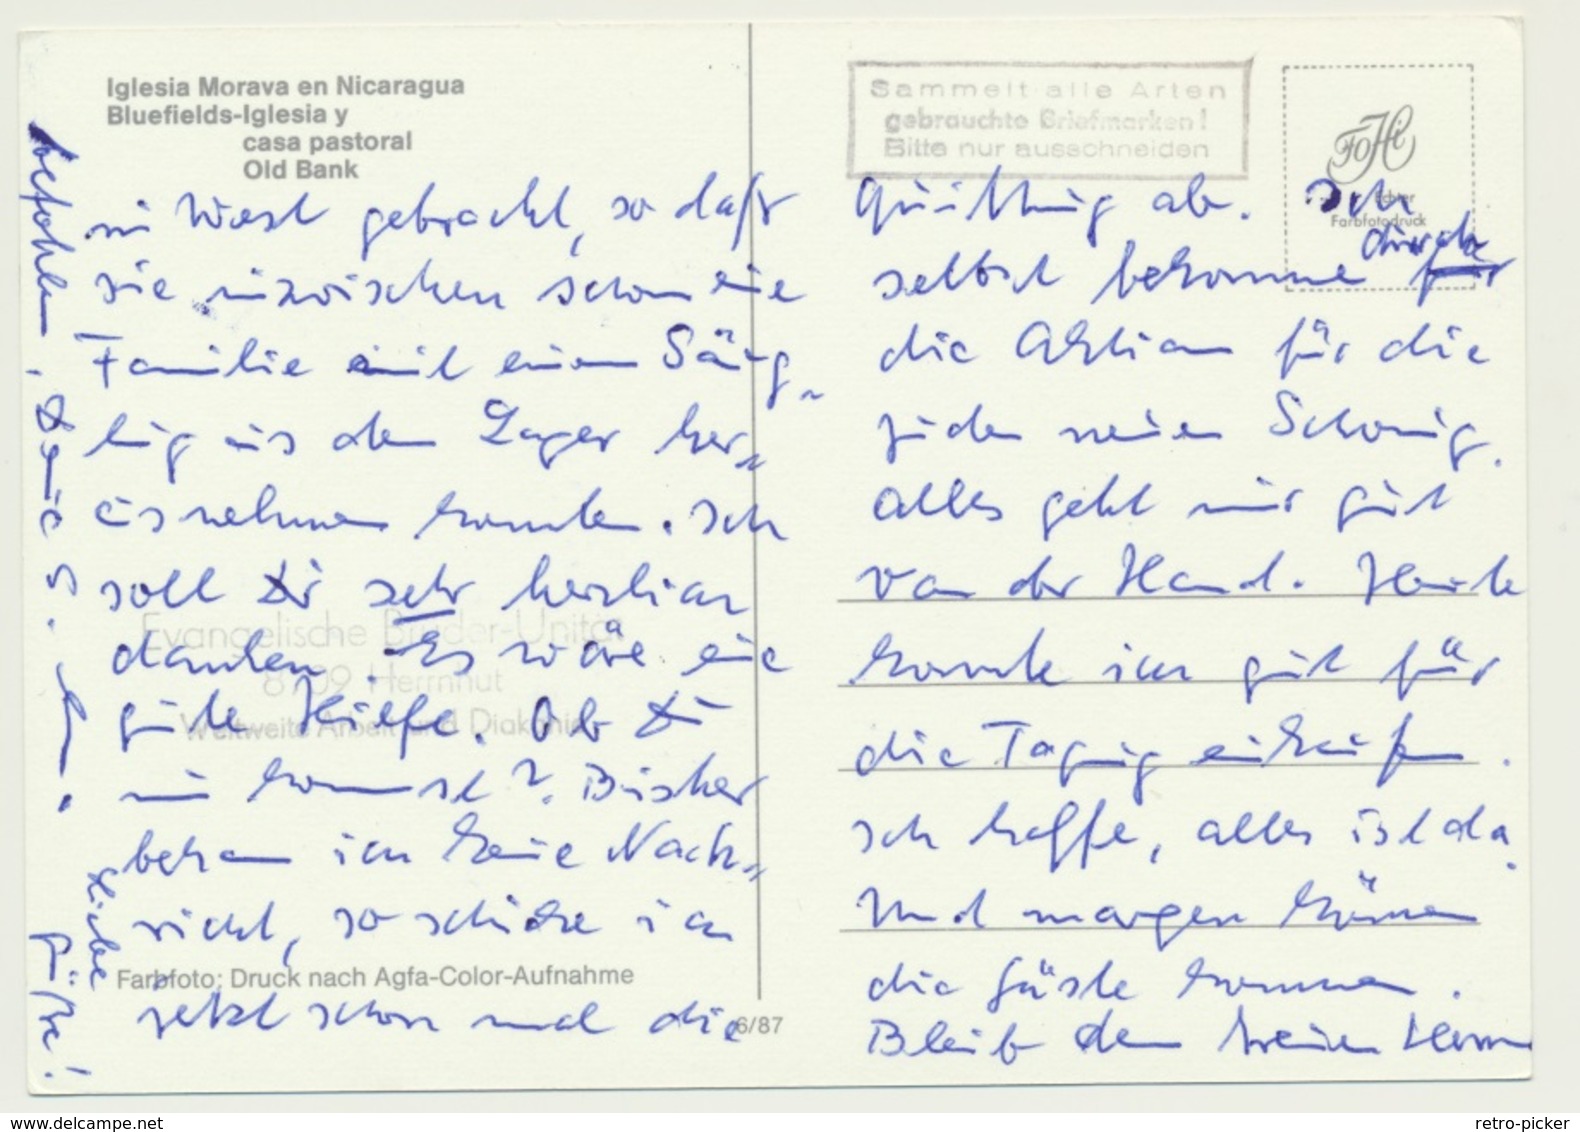 Iglesia Morava en Nicaragua
Bluefields-Iglesia y
casa pastoral
Old Bank
in West gebracht, so daß
sie inzwischen schon eine
Familie mit einem Säug-
ling aus dem Lager her-
ausnehmen konnten. Ich
soll Dir sehr herzlich
danken. Es wäre eine
gute Hilfe. Ob Du
nun kommst? Bisher
bekam ich keine Nach-
richt, so schicke ich
jetzt schon mal die
Evangelische Brüder-Unität
8709 Herrnhut
Weltweite Arbeit und Diakonie
Farbfoto: Druck nach Agfa-Color-Aufnahme
6/87
Sammelt alle Arten
gebrauchte Briefmarken!
Bitte nur ausschneiden
FOHi
Echter
Farbfotodruck
Quittung ab. Ich
selbst bekomme durch für
die Aktion für die
Juden neuen Schwung.
Alles geht mir gut
von der Hand. Heute
konnte ich gut für
die Tagung einkaufen.
Ich hoffe, alles ist da.
Und morgen können
die Gäste kommen.
Bleib dem treuen Herrn
befohlen.
Liebe
Grüße!
retro-picker on www.delcampe.net
retro-picker